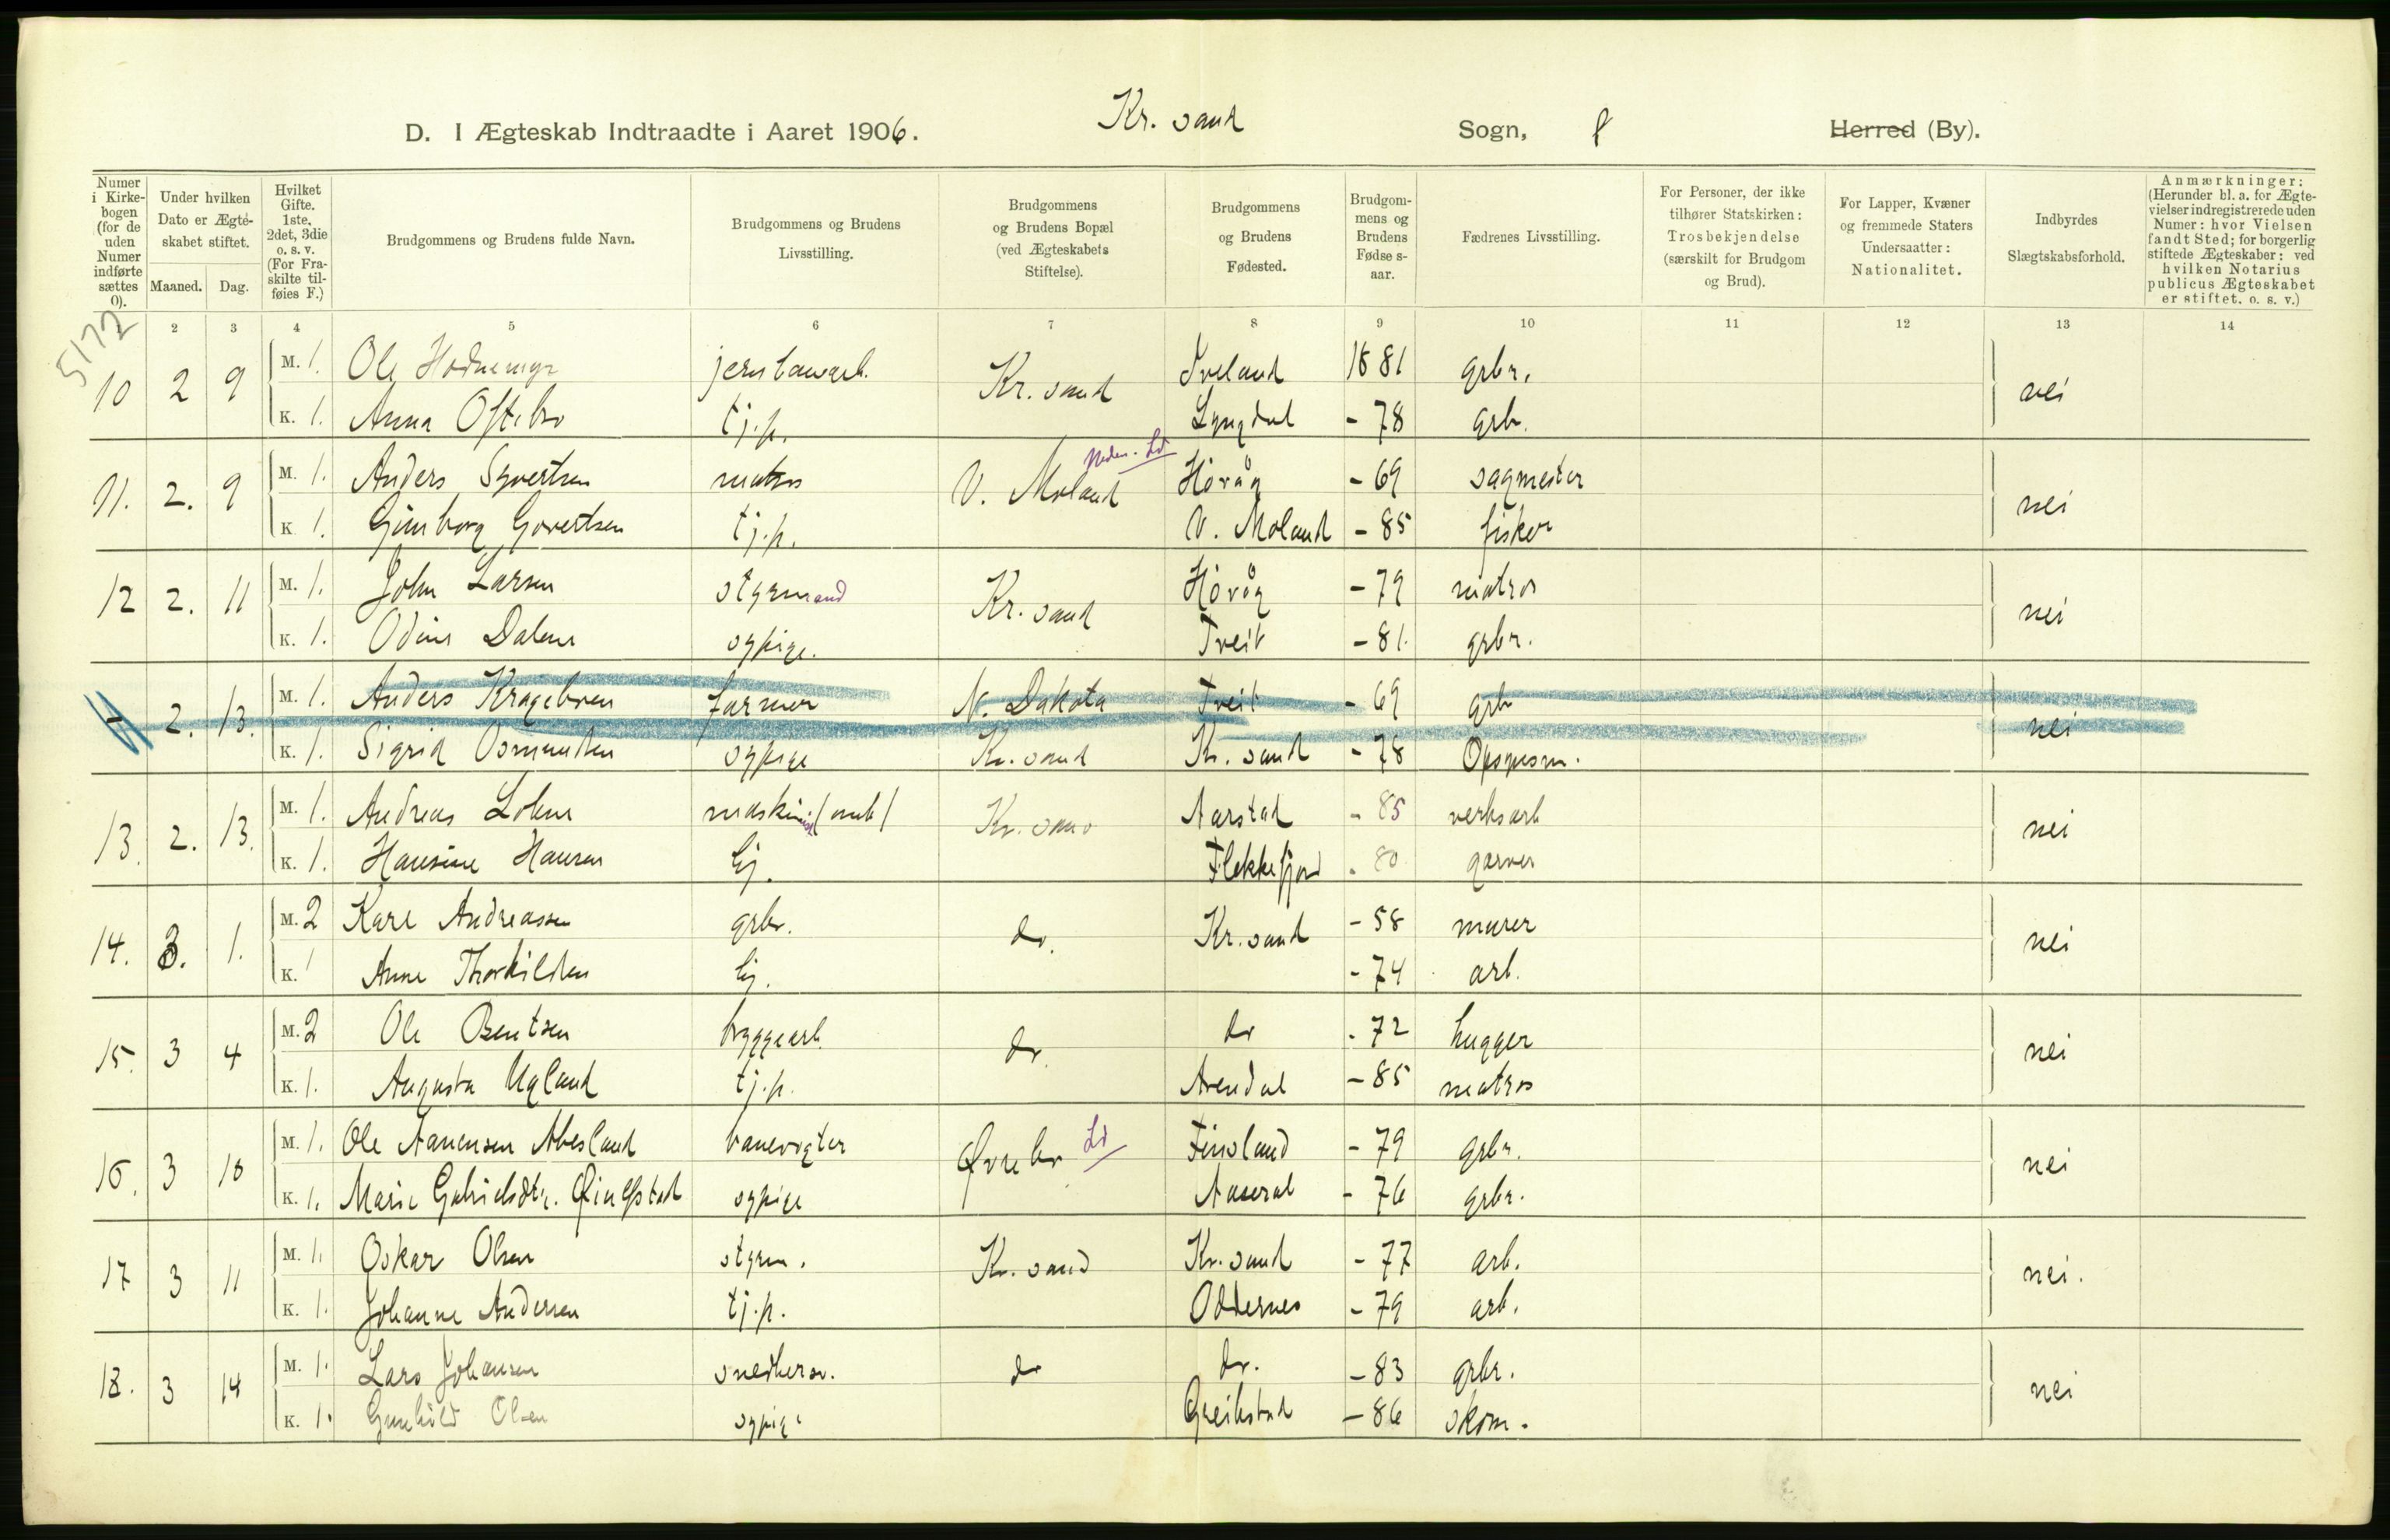 Kr. sand
D. I Ægteskab Indtraadte i Aaret 1906. Sogn, Herred (By).
Numer i Kirkebogen (for de uden Numer indførte sættes 0).
Under hvilken Dato er Ægteskabet stiftet.
Maaned. Dag.
Hvilket Gifte. 1ste, 2det, 3die o. s. v. (For Fraskilte tilføies F.)
Brudgommens og Brudens fulde Navn.
Brudgommens og Brudens Livsstilling.
Brudgommens og Brudens Bopæl (ved Ægteskabets Stiftelse).
Brudgommens og Brudens Fødested.
Brudgommens og Brudens Fødselsaar.
Fædrenes Livsstilling.
For Personer, der ikke tilhører Statskirken: Trosbekjendelse (særskilt for Brudgom og Brud).
For Lapper, Kvæner og fremmede Staters Undersaatter: Nationalitet.
Indbyrdes Slægtskabsforhold.
Anmærkninger: (Herunder bl. a. for Ægtevielser indregistrerede uden Numer: hvor Vielsen fandt Sted; for borgerlig stiftede Ægteskaber: ved hvilken Notarius publicus Ægteskabet er stiftet. o. s. v.)
5172
2 3 4 5 6 7 8 9 10 11 12 13 14
10 2 9 M. 1. Ole Hodnemyr jernbanearb. Kr. sand Iveland 1881 grbr. nei
K. 1. Anna Oftebro tj.p. Lyngdal - 78 grb.
11. 2. 9 M. 1. Anders Syvertsen matros V. Moland Neden. Ld Høvåg - 69 sagmester nei
K 1. Gunborg Govertsen tj.p. V. Moland - 85 fisker
12 2. 11 M. 1. John Larsen styrmand Kr. sand Høvåg - 79 matros nei
K. 1. Odine Dalene sypige. Tveit - 81. grbr.
2. 13. M. 1. Anders Kragebøen farmer N. Dakota Tveit - 69 grb nei
K. 1. Sigrid Osmundsen sypige Kr. sand Kr. sand - 78 Opsynsm.
13. 2. 13. M. 1. Andreas Lohne maskinist Kr. sand Aarstad - 85 verksarb nei
K. 1. Hansine Hansen tj. Flekkefjord - 80 garver
14. 3. 1. M. 2 Karl Andreassen grbr. do. Kr. sand - 58 murer nei
K. 1 Anne Thorkildsen tj. - 74 arb.
15. 3 4 M. 2 Ole Bentsen byggearb. do. do - 72 hugger nei
K. 1. Augusta Ugland tj.p. Arendal - 85 matros
16. 3 10 M. 1. Ole Aanensen Abesland banevogter Øvrebø Ld Finsland - 79 grbr. nei
K. 1. Marie Gabrielsdtr. sypige Aaseral - 76 grbr.
17 3 11 M. 1. Oskar Olsen styrm. Kr. sand Kr. sand - 77 arb. nei.
K. 1. Johanne Andersen tj.p. Oddernes - 79 arb.
18. 3 14 M. 1. Lars Johansen snedkersv. do do. - 83 grbr. nei
K. 1. Gunhild Olsen sypige Greipstad - 86 skom.